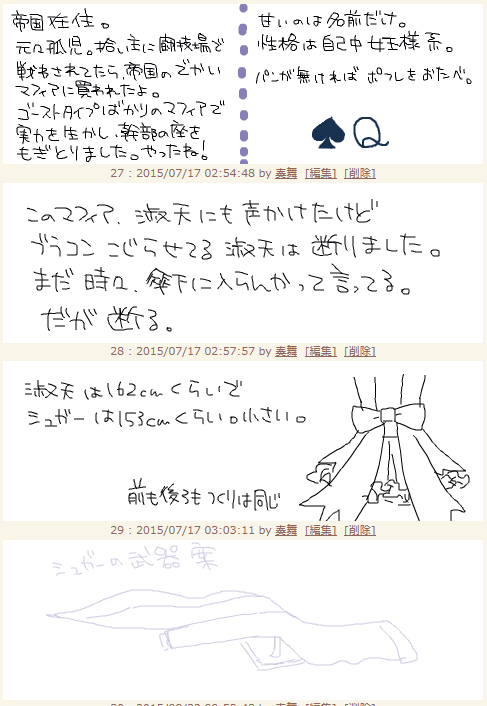 帝国在住。
元々孤児。拾い主に闘技場で
戦わされてたら、帝国のでかい
マフィアに買われたよ。
ゴーストタイプばかりのマフィアで
実力を生かし、幹部の座を
もぎとりました。やったね!
甘いのは名前だけ。
性格は自己中女王様系。
パンが無ければ ポフレをおたべ。
♠Q
27 : 2015/07/17 02:54:48 by 奏舞 [編集] [削除]
このマフィア、淑天にも声かけたけど
ブラコン こじらせてる 淑天は 断りました。
まだ 時々、傘下に入らんかって言ってる。
だが 断る。
28 : 2015/07/17 02:57:57 by 奏舞 [編集] [削除]
淑天は162cmくらいで
シュガーは153cmくらい。小さい。
前も後ろもつくりは同じ
29 : 2015/07/17 03:03:11 by 奏舞 [編集] [削除]
シュガーの武器案